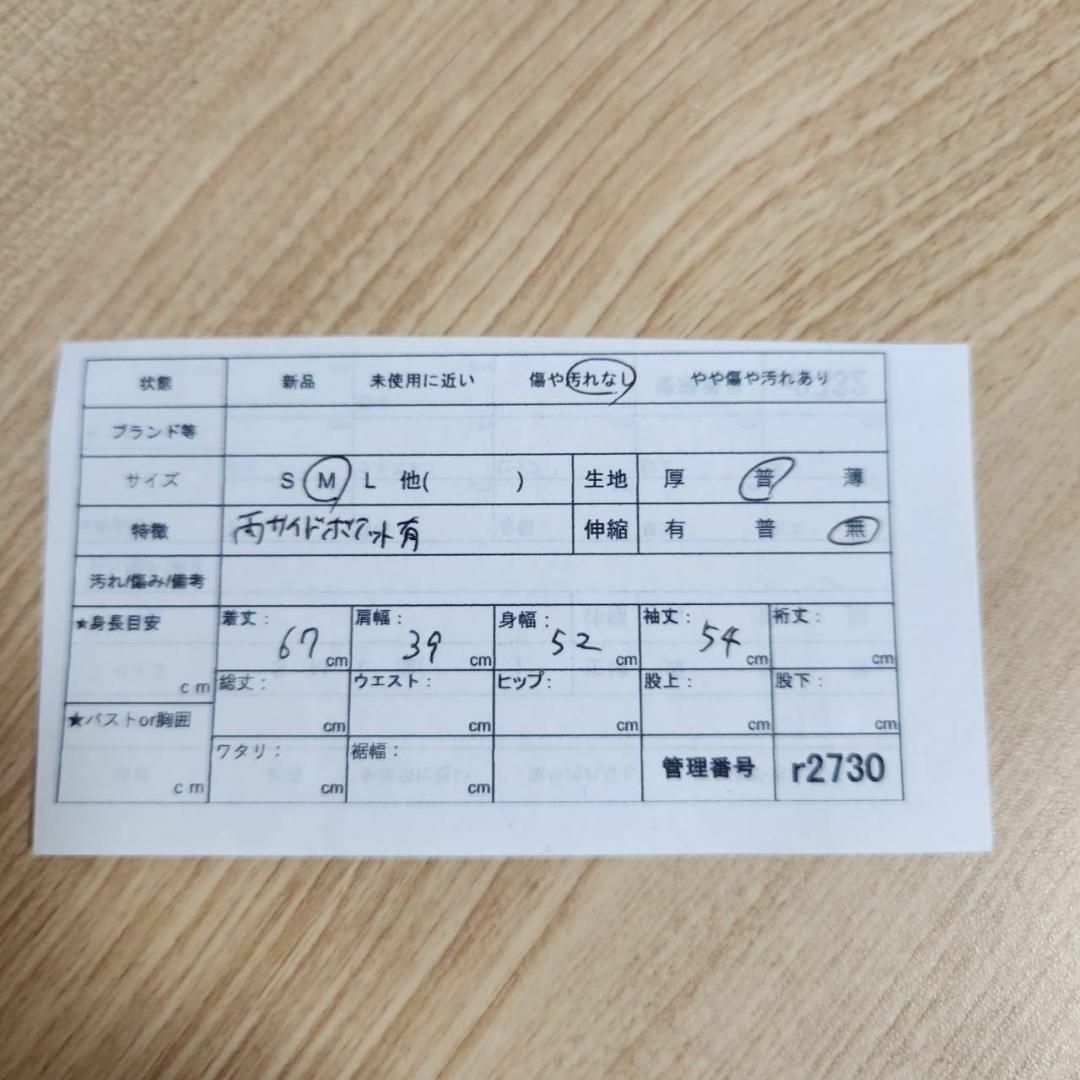 状態 新品 未使用に近い 傷や汚れなし やや傷や汚れあり
ブランド等
サイズ S M L 他( ) 生地 厚 普 薄
特徴 両サイドポケット有 伸縮 有 普 無
汚れ/傷み/備考
★身長目安 cm
着丈: 67 cm
肩幅: 39 cm
身幅: 52 cm
袖丈: 54 cm
裄丈: cm
総丈: cm
ウエスト: cm
ヒップ: cm
股上: cm
股下: cm
★バストor胸囲 cm
ワタリ: cm
裾幅: cm
管理番号 r2730